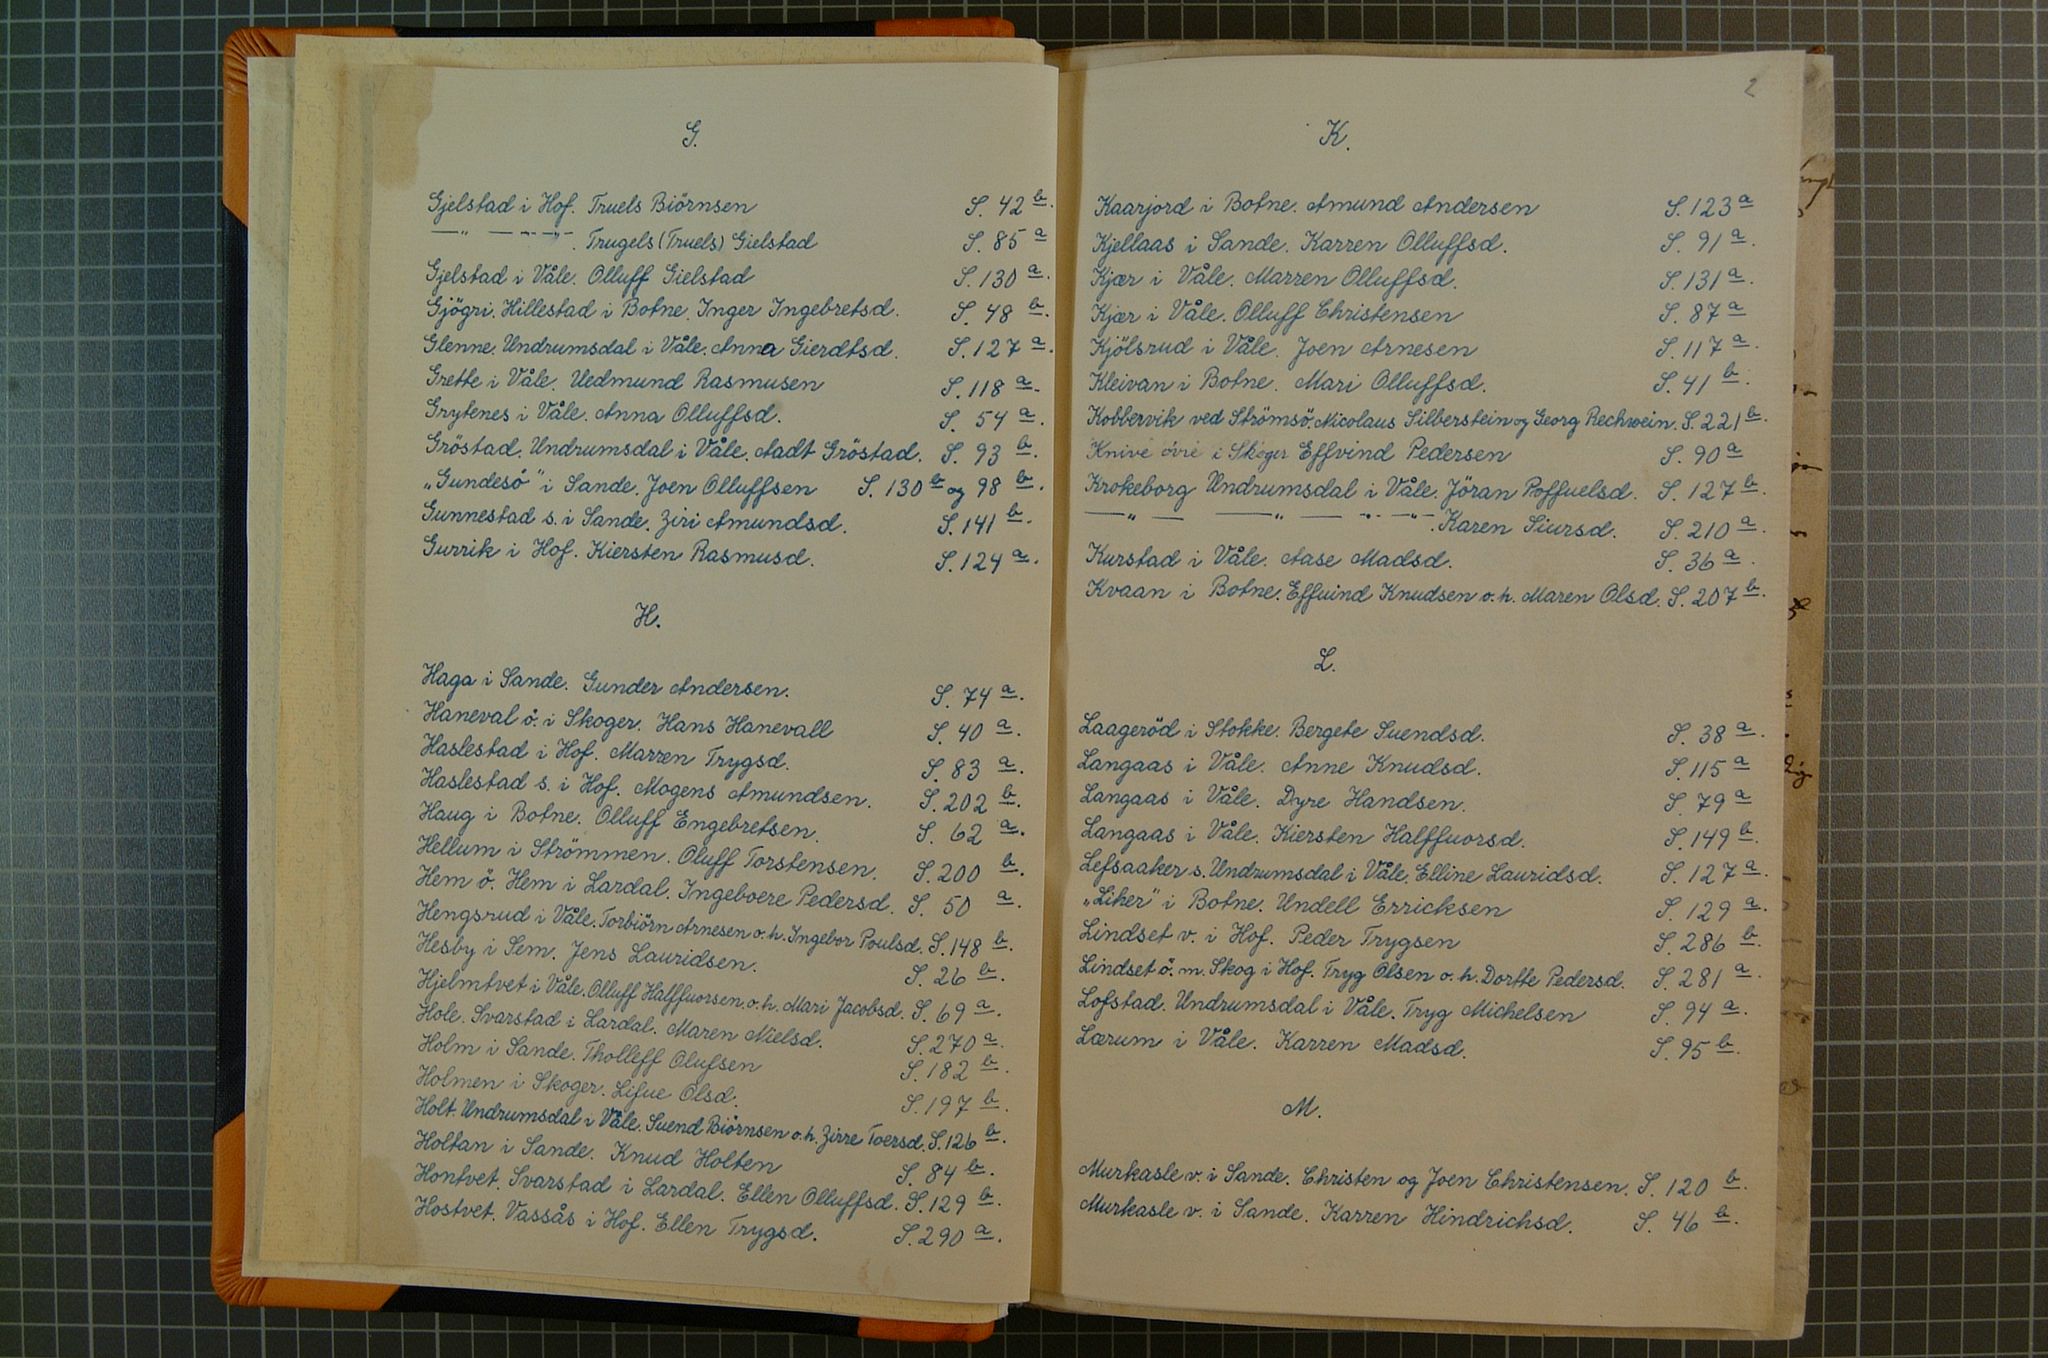 G.
Gjelstad i Hof. Truels Biörnsen S. 42 b.
—"— —"—"—. Trugels (Truels) Gielstad S. 85 a
Gjelstad i Våle. Olluff Gielstad S. 130 a.
Gjögri. Hillestad i Botne. Inger Ingebretsd. S. 48 b.
Glenne. Undrumsdal i Våle. Anna Gierdtsd. S. 127 a.
Grette i Våle. Uedmund Rasmusen S. 118 a.
Grytenes i Våle. Anna Olluffsd. S. 54 a.
Gröstad. Undrumsdal i Våle. Aadt Gröstad. S. 93 b.
„Gundesö" i Sande. Joen Olluffsen S. 130 b og 98 b.
Gunnestad s. i Sande. Ziri Amundsd. S. 141 b.
Gurrik i Hof. Kiersten Rasmusd. S. 124 a.
H.
Haga i Sande. Gunder Andersen. S. 74 a.
Haneval ö. i Skoger. Hans Hanevall S. 40 a.
Haslestad i Hof. Marren Trygsd. S. 83 a.
Haslestad s. i Hof. Mogens Amundsen. S. 202 b.
Haug i Botne. Olluff Engebretsen. S. 62 a.
Hellum i Strömmen. Oluff Torstensen. S. 200 b.
Hem ö. Hem i Lardal. Ingeboere Pedersd. S. 50 a.
Hengsrud i Våle. Torbiörn Arnesen o. h. Ingebor Poulsd. S. 148 b.
Hesby i Sem. Jens Lauridsen. S. 26 b.
Hjelmtvet i Våle. Olluff Halffuorsen o. h. Mari Jacobsd. S. 69 a.
Hole. Svarstad i Lardal. Maren Nielsd. S. 270 a.
Holm i Sande. Tholleff Olufsen S. 182 b.
Holmen i Skoger. Lifue Olsd. S. 197 b.
Holt. Undrumsdal i Våle. Suend Biörnsen o. h. Zirre Toersd. S. 126 b.
Holtan i Sande. Knud Holten S. 84 b.
Hontvet. Svarstad i Lardal. Ellen Olluffsd. S. 129 b.
Hostvet. Vassås i Hof. Ellen Trygsd. S. 290 a.
2
K.
Kaarjord i Botne. Amund Andersen S. 123 a
Kjellaas i Sande. Karren Olluffsd. S. 91 a.
Kjær i Våle. Marren Olluffsd. S. 131 a.
Kjær i Våle. Olluff Christensen S. 87 a
Kjölsrud i Våle. Joen Arnesen S. 117 a.
Kleivan i Botne. Mari Olluffsd. S. 41 b.
Kobbervik ved Strömsö. Nicolaus Silberstein og Georg Rechwein. S. 221 b.
Knive övre i Skoger Effvind Pedersen S. 90 a
Krokeborg Undrumsdal i Våle. Jöran Poffuelsd. S. 127 b.
—"— —"— —"—"—. Karen Siursd. S. 210 a.
Kurstad i Våle. Aase Madsd. S. 36 a.
Kvaan i Botne. Effuind Knudsen o. h. Maren Olsd. S. 207 b.
L.
Laageröd i Stokke. Bergete Suendsd. S. 38 a.
Langaas i Våle. Anne Knudsd. S. 115 a
Langaas i Våle. Dyre Handsen. S. 79 a
Langaas i Våle. Kiersten Halffuorsd. S. 149 b.
Lefsaaker s. Undrumsdal i Våle. Elline Lauridsd. S. 127 a.
„Liker" i Botne. Undell Erricksen S. 129 a.
Lindset v. i Hof. Peder Trygsen S. 286 b.
Lindset ö. m. Skog i Hof. Tryg Olsen o. h. Dortte Pedersd. S. 281 a.
Lofstad. Undrumsdal i Våle. Tryg Michelsen S. 94 a.
Lærum i Våle. Karren Madsd. S. 95 b.
M.
Murkasle v. i Sande. Christen og Joen Christensen. S. 120 b.
Murkasle v. i Sande. Karren Hindrichsd. S. 46 b.